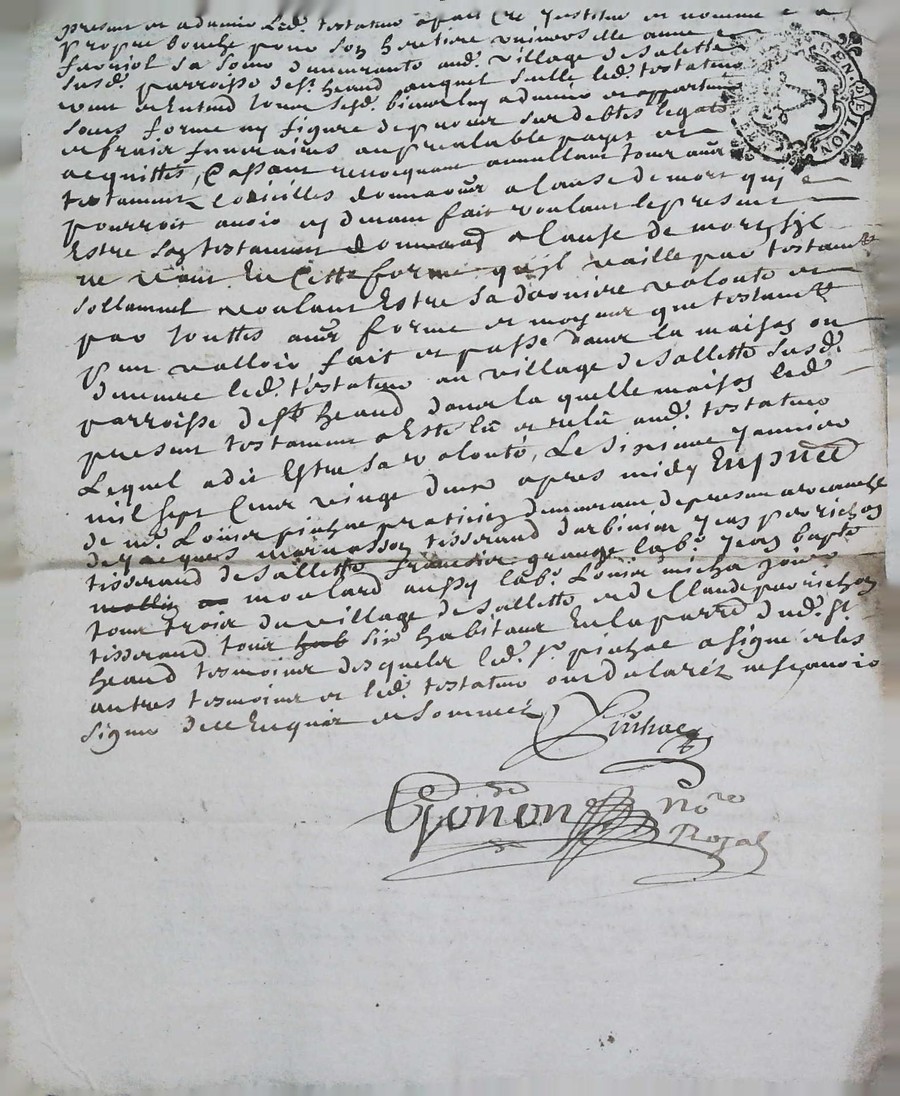 present et advenir led. testateur a fait cré jnstitué et nomme de sa
propre bouche pour son heritiere universelle anne
favriol sa soeur demeurante aud. village de Salette
susd. parroisse de st. heand auquel seulle led. testateur
veut et Entend tous sesd. biens luy advenir et appartenir
sans forme ny figure de proces sur debtes legats
et fraix funeraires au prealable payes et
acquittés, Cassant revocquant annullant tous autres
testament Codicilles donnaõns a Cause de mort qui
pourroit avoir cy devant fait voulant le present
Estre son testament donnaõn a Cause de mort s'il
ne vaut En Cette forme qu'il vaille par testament
sollannel voulant Estre sa derniere volonte et
par touttes autres forme et moyens que testament
peut valloir fait et passé dans la maison ou
demeure led. testateur au village de Sallette Susd.
parroisse de St heand dans la quelle maison led.
present testament a Esté lû et relû aud. testateur
Lequel a dit Estre sa volonté, Le Sixieme Janvier
mil sept Cent vingt deux apres midy En pñce
de me. Louis pinhac praticien demeurant de present a
de Jacques tisserand d'arbinion Jean perrichon
tisserand de Sallette françois grange lab. Jean bapte
moulard aussy lab. Louis micha
tous trois du village de Sallette et de Claude perrichon
tisserand tous six habitans En la parre dud. St
heand tesmoins desquels led. sr. pinhac a signé et les
autres tesmoins et led. testateur ont declarez ne sçavoir
signer de ce Enquis et Sommez
Pinhac
Goñon No.re
Royal
GEN. DE LION